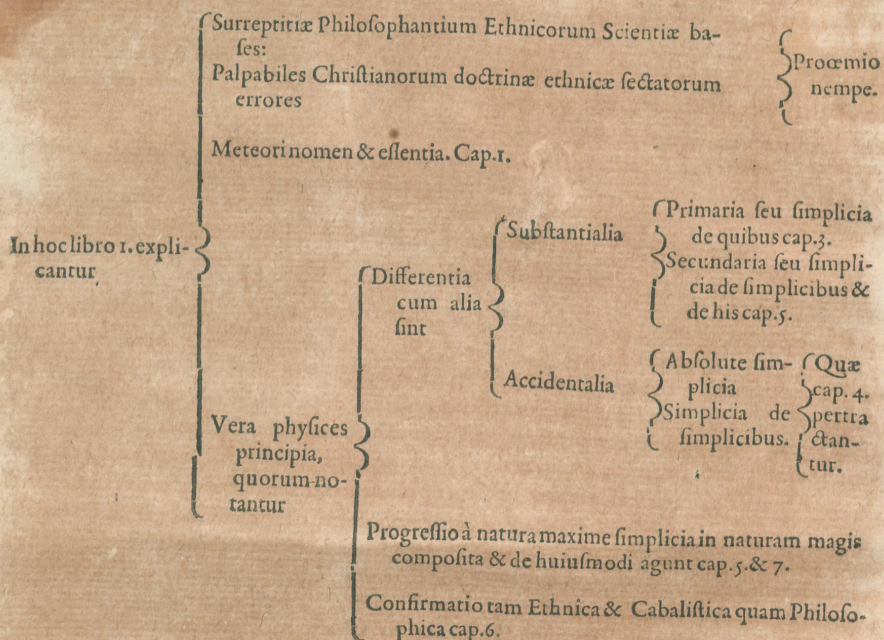 Surreptitiæ Philoſophantium Ethnicorum Scientiæ ba-
ſes:
Palpabiles Chriſtianorum doctrinæ ethnicæ ſectatorum
errores
Proœmio
nempe.
Meteori nomen & eſſentia. Cap.1.
In hoc libro 1. expli-
cantur
Vera phyſices
principia,
quorum no-
tantur
Differentia
cum alia
ſint
Subſtantialia
Primaria ſeu ſimplicia
de quibus cap.3.
Secundaria ſeu ſimpli-
cia de ſimplicibus &
de his cap.5.
Accidentalia
Abſolute ſim-
plicia
Simplicia de
ſimplicibus.
Quæ
cap. 4.
pertra
ctan-
tur.
Progreſſio à natura maxime ſimplicia in naturam magis
compoſita & de huiuſmodi agunt cap.5.& 7.
Confirmatio tam Ethnica & Cabaliſtica quam Philoſo-
phica cap.6.